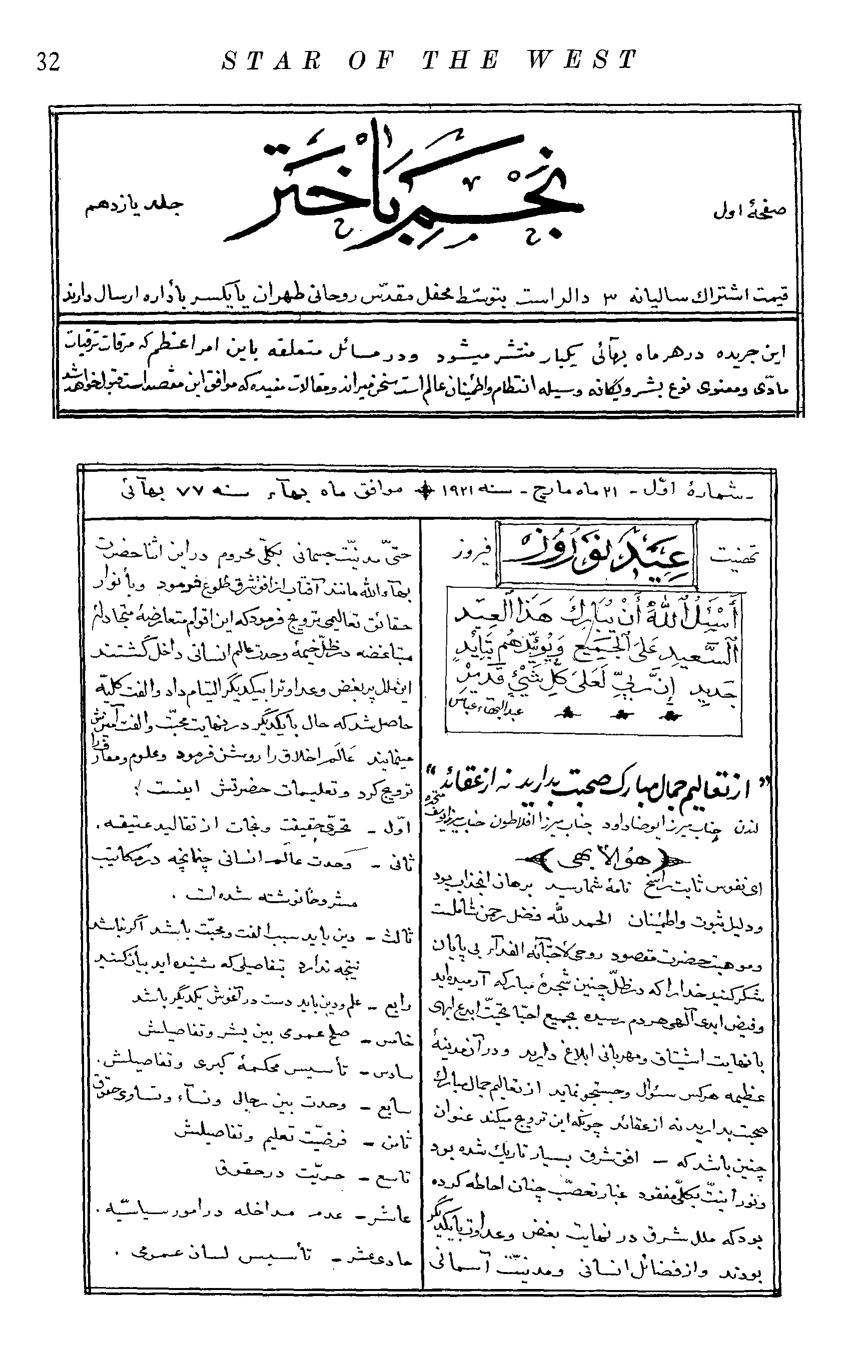 32
STAR OF THE WEST
صفحهٔ اول
نجم باختر
جلد یازدهم
قیمت اشتراک سالیانه ۳ دالر است بتوسّط محفل مقدّس روحانی طهران یا یکسر باداره ارسال دارند
این جریده در هر ماه بهائی یکبار منتشر میشود و در مسائل متعلقه باین امر اعظم که مرقات ترقیات
مادّی و معنوی نوع بشر و یگانه وسیله انتظام و اطمینان عالم است سخن میراند و مقالات مفیده که موافق این مقصد است قبول خواهد شد
شمارهٔ اوّل - ۲۱ ماه مارچ - سنه ۱۹۲۱ موافق ماه بهاء سنه ۷۷ بهائی
تهنیت
عید نوروز
فیروز
أَسْئَلُ اللهَ أَنْ يُبَارِكَ هَذَا الْعِيد
السَّعِيد عَلَى الْجَمِيعِ وَيُؤَيِّدَهُم بِتَأْيِيدٍ
جَدِيدٍ إِنَّ رَبِّي لَعَلَى كُلِّ شَيْءٍ قَدِيرٌ
عبدالبهاء عباس
"از تعالیم جمال مبارک صحبت بدارید نه از عقائد"
لندن جناب میرزا داود جناب میرزا افلاطون جناب میرزا یوسف
هو الابهی
ای نفوس ثابت راسخ نامهٔ شما رسید برهان انجذاب بود
و دلیل ثبوت و اطمینان الحمد لله فضل رحمن شاملست
و موهبت حضرت مقصود روحی لاحبّائه الفداء بی پایان
شکر کنید خدا را که در ظلّ چنین شجرهٔ مبارکه آرمیده‌اید
و فیض ابدی آلهی هر دم رسیده بجمیع احبّا تحیّت ابدع ابهی
با نهایت اشتیاق و مهربانی ابلاغ دارید و در آن مدینهٔ
عظیمه هرکس سئوال و جستجو نماید از تعالیم جمال مبارک
صحبت بدارید نه از عقائد چونکه این ترویج میکند عنوان
چنین باشد که - افق شرق بسیار تاریک شده بود
و نورانیّت بکلّی مفقود غبار تعصّب چنان احاطه کرده
بود که ملل شرق در نهایت بغض و عداوت با یکدیگر
بودند و از فضائل انسانی و مدنیّت آسمانی
حتّی مدنیّت جسمانی بکلّی محروم در این اثنا حضرت
بهاءالله مانند آفتاب از افق شرق طلوع فرمود و بانوار
حقائق تعالیمی ترویج فرمود که این اقوام متعارضهٔ متجادلهٔ
متباغضه در ظلّ خیمهٔ وحدت عالم انسانی داخل گشتند
این ملل پر بغض و عداوت را بیکدیگر التیام داد و الفت کلیّه
حاصل شد که حال با یکدیگر در نهایت محبّت و الفت آمیزش
مینمایند عالم اخلاق را روشن فرمود و علوم و معارف را
ترویج کرد و تعلیمات حضرتش اینست :
اوّل - تحرّی حقیقت و نجات از تقالید عتیقه .
ثانی - وحدت عالم انسانی چنانچه در مکاتیب
مشروحاً نوشته شده است .
ثالث - دین باید سبب الفت و محبّت باشد اگر نباشد
نتیجه ندارد بتفاصیلی که شنیده‌اید بیان کنید
رابع - علم و دین باید دست در آغوش یکدیگر باشد
خامس - صلح عمومی بین بشر و تفاصیلش
سادس - تأسیس محکمهٔ کبری و تفاصیلش .
سابع - وحدت بین رجال و نساء و تساوی حقوق
ثامن - فرضیّت تعلیم و تفاصیلش
تاسع - حریّت در حقوق
عاشر - عدم مداخله در امور سیاسیّه .
حادی عشر - تأسیس لسان عمومی .